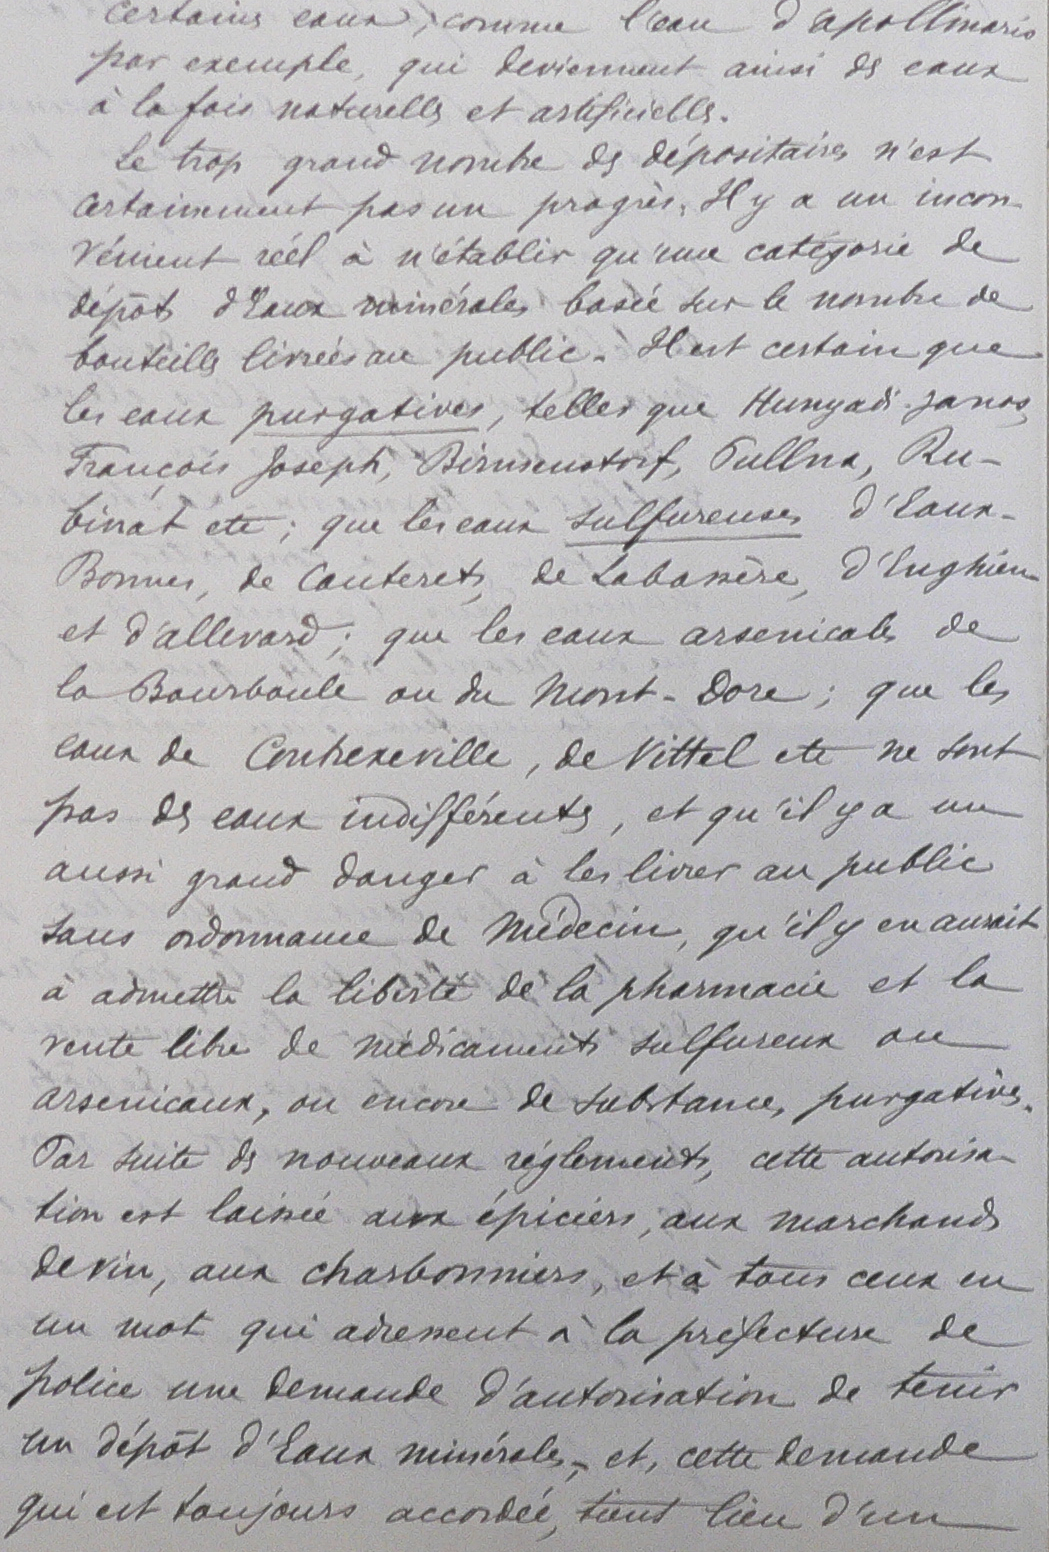 certaines eaux, comme l'eau d'apollinaris
par exemple, qui deviennent ainsi des eaux
à la fois naturelles et artificielles.
Le trop grand nombre des dépositaires n'est
certainement pas un progrès. Il y a un incon-
vénient réel à n'établir qu'une catégorie de
dépôts d'Eaux minérales basée sur le nombre de
bouteilles livrées au public. Il est certain que
les eaux purgatives, telles que Hunyadi-Janos,
François Joseph, Birmenstorf, Pullna, Ru-
binat etc; que les eaux sulfureuses d'Eaux-
Bonnes, de Cauterets, de Labassère, d'Enghien
et d'allevard; que les eaux arsenicales de
la Bourboule ou du Mont-Dore; que les
eaux de Contrexeville, de Vittel etc ne sont
pas des eaux indifférentes, et qu'il y a un
aussi grand danger à les livrer au public
sans ordonnance de Médecin, qu'il y en aurait
à admettre la liberté de la pharmacie et la
vente libre de médicaments sulfureux ou
arsenicaux, ou encore de substances purgatives.
Par suite des nouveaux réglements, cette autorisa-
tion est laissée aux épiciers, aux marchands
de vin, aux charbonniers, et à tous ceux en
un mot qui adressent à la préfecture de
police une demande d'autorisation de tenir
un dépôt d'Eaux minérales, et, cette demande
qui est toujours accordée, tient lieu d'un